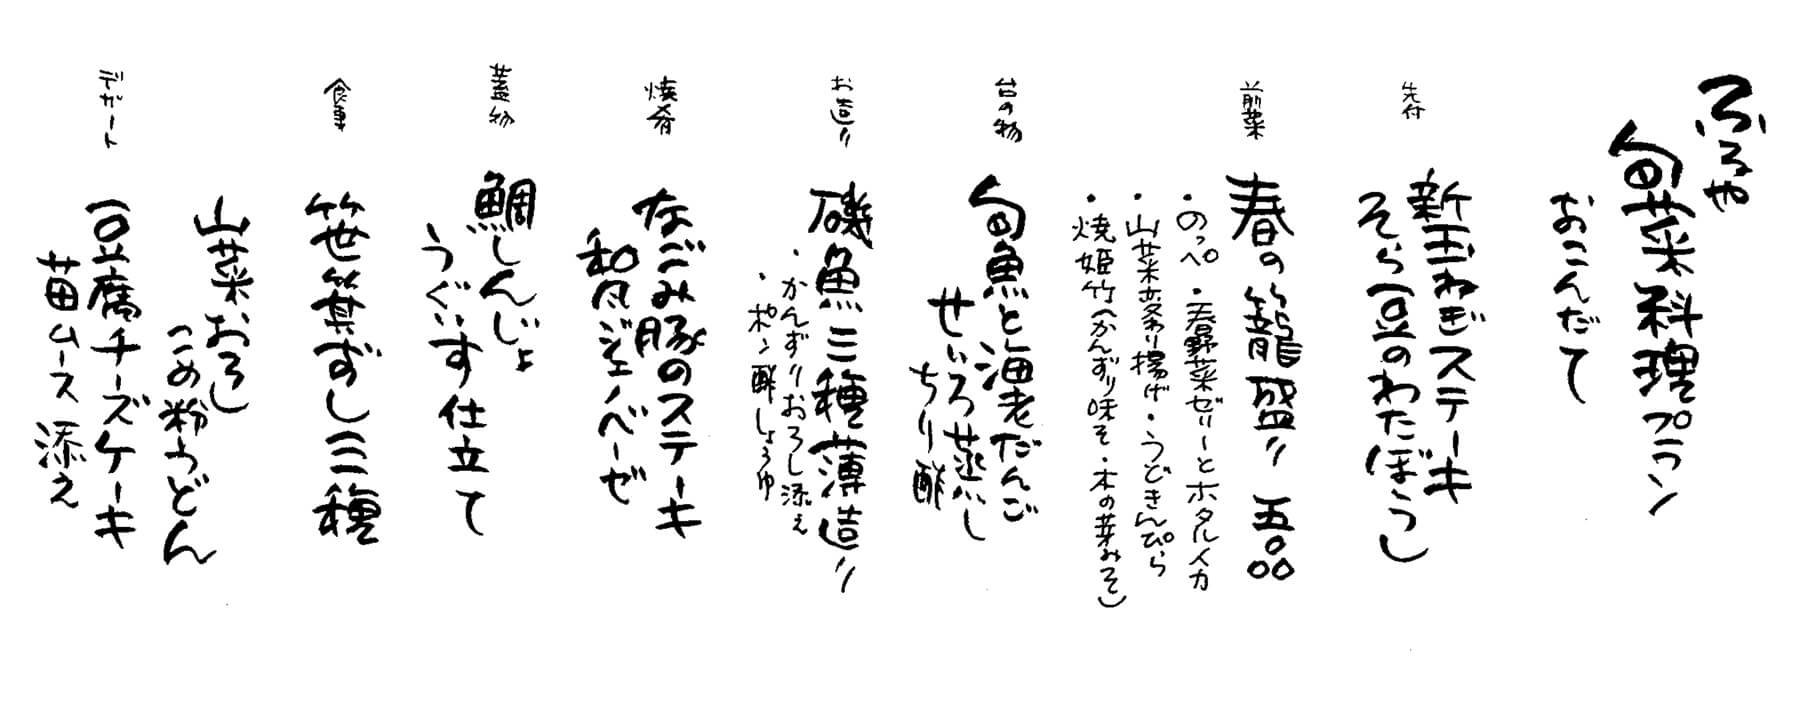 ふるや
旬菜料理プラン
おこんだて
先付
新玉ねぎステーキ
そら豆のわたぼうし
前菜
春の籠盛り 五品
・のっぺ・春野菜ゼリーとホタルイカ
・山菜変わり揚げ・うどきんぴら
・焼姫竹(かんずり味そ・木の芽みそ)
台の物
旬魚と海老だんご
せいろ蒸し
ちり酢
お造り
磯魚三種薄造り
・かんずりおろし添え
・ポン酢しょうゆ
焼肴
なごみ豚のステーキ
和風ジェノベーゼ
蓋物
鯛しんじょ
うぐいす仕立て
食事
笹箕ずし三種
山菜おろし
こめ粉うどん
デザート
豆腐チーズケーキ
苗ムース添え